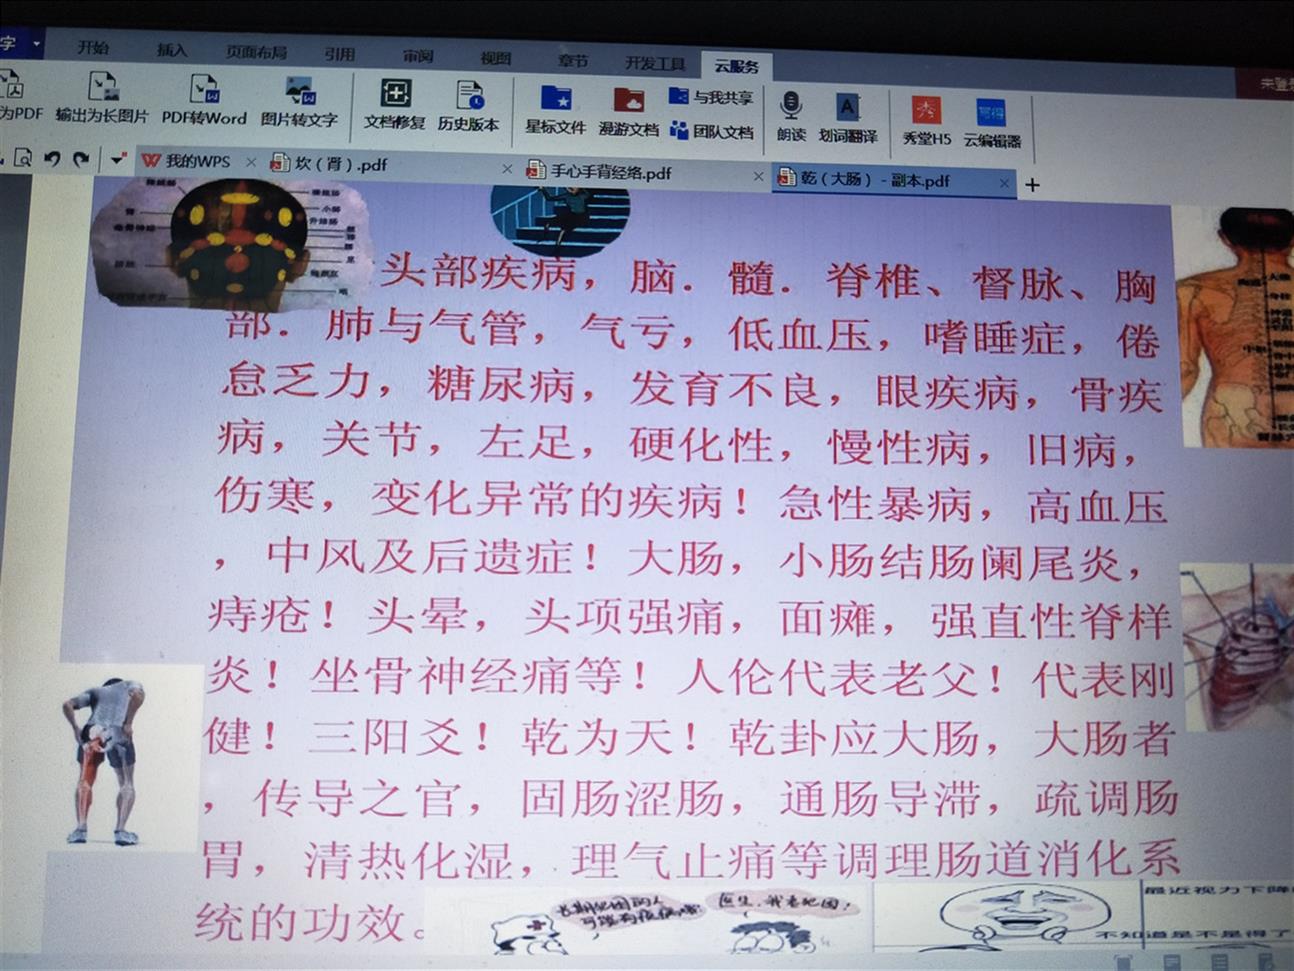 开始 插入 页面布局 引用 审阅 视图 章节 开发工具 云服务
未登
为PDF 输出为长图片 PDF转Word 图片转文字 文档修复 历史版本 星标文件 漫游文档 与我共享 团队文档 朗读 划词翻译 秀堂H5 云编辑器
我的WPS 坎（肾）.pdf 手心手背经络.pdf 乾（大肠） - 副本.pdf
头部疾病，脑．髓．脊椎、督脉、胸
部．肺与气管，气亏，低血压，嗜睡症，倦
怠乏力，糖尿病，发育不良，眼疾病，骨疾
病，关节，左足，硬化性，慢性病，旧病，
伤寒，变化异常的疾病！急性暴病，高血压
，中风及后遗症！大肠，小肠结肠阑尾炎，
痔疮！头晕，头项强痛，面瘫，强直性脊样
炎！坐骨神经痛等！人伦代表老父！代表刚
健！三阳爻！乾为天！乾卦应大肠，大肠者
，传导之官，固肠涩肠，通肠导滞，疏调肠
胃，清热化湿，理气止痛等调理肠道消化系
统的功效。
医生，我老犯困！
最近视力下降
不知道是不是得了